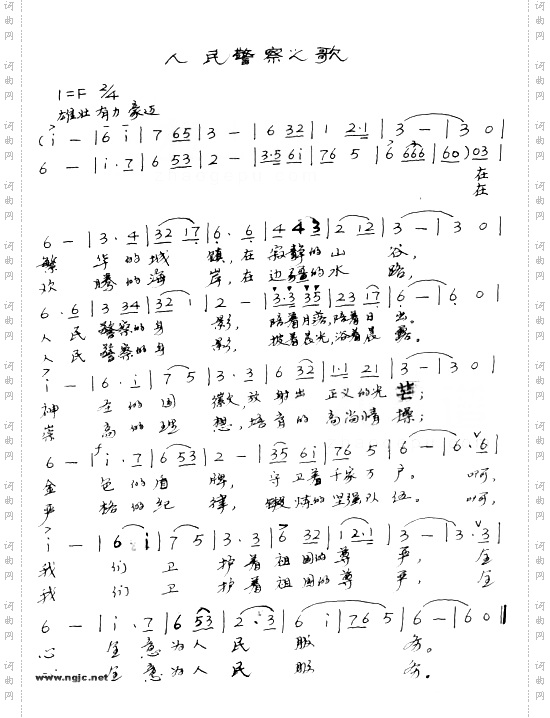 人民警察之歌
1=F 2/4
雄壮 有力 豪迈
(i - | 6 i | 7 65 | 3 - | 6 32 | 1 2·1 | 3 - | 3 0 |
6 - | i·7 | 6 53 | 2 - | 3·5 6i | 76 5 | 6 666 | 60) 03 |
在
在
6 - | 3·4 | 32 17 | 6·6 | 4 43 | 2 12 | 3 - | 3 0 |
繁 华的城 镇,在寂静的山 谷,
欢 腾的海 岸,在边疆的水 路,
6·6 | 3 34 | 32 1 | 2 - | 3·3 35 | 23 17 | 6 - | 6 0 |
人民警察的身 影, 陪着月落,陪着日 出。
人民警察的身 影, 披着晨光,浴着晨 露。
i - | 6·i | 7 5 | 3·3 | 6 32 | 1·1 21 | 3 - | 3 0 |
神 圣的国 徽,放射出 正义的光 芒;
崇 高的理 想,培育的 高尚情 操;
6 - | i·7 | 6 53 | 2 - | 35 6i | 76 5 | 6 - | 6·6 |
金 色的盾 牌, 守卫着千家万 户。 啊,
严 格的纪 律, 锻炼的坚强队 伍。 啊,
i - | 6 i | 7 5 | 3·3 | 6 32 | 1 2·1 | 3 - | 3·3 |
我 们 卫 护着祖国的尊 严, 全
我 们 卫 护着祖国的尊 严, 全
6 - | i·7 | 6 53 | 2·3 | 6 i | 76 5 | 6 - | 6 0 ‖
心 全意为人民 服 务。
心 全意为人民 服 务。
www.ngjc.net
词曲网